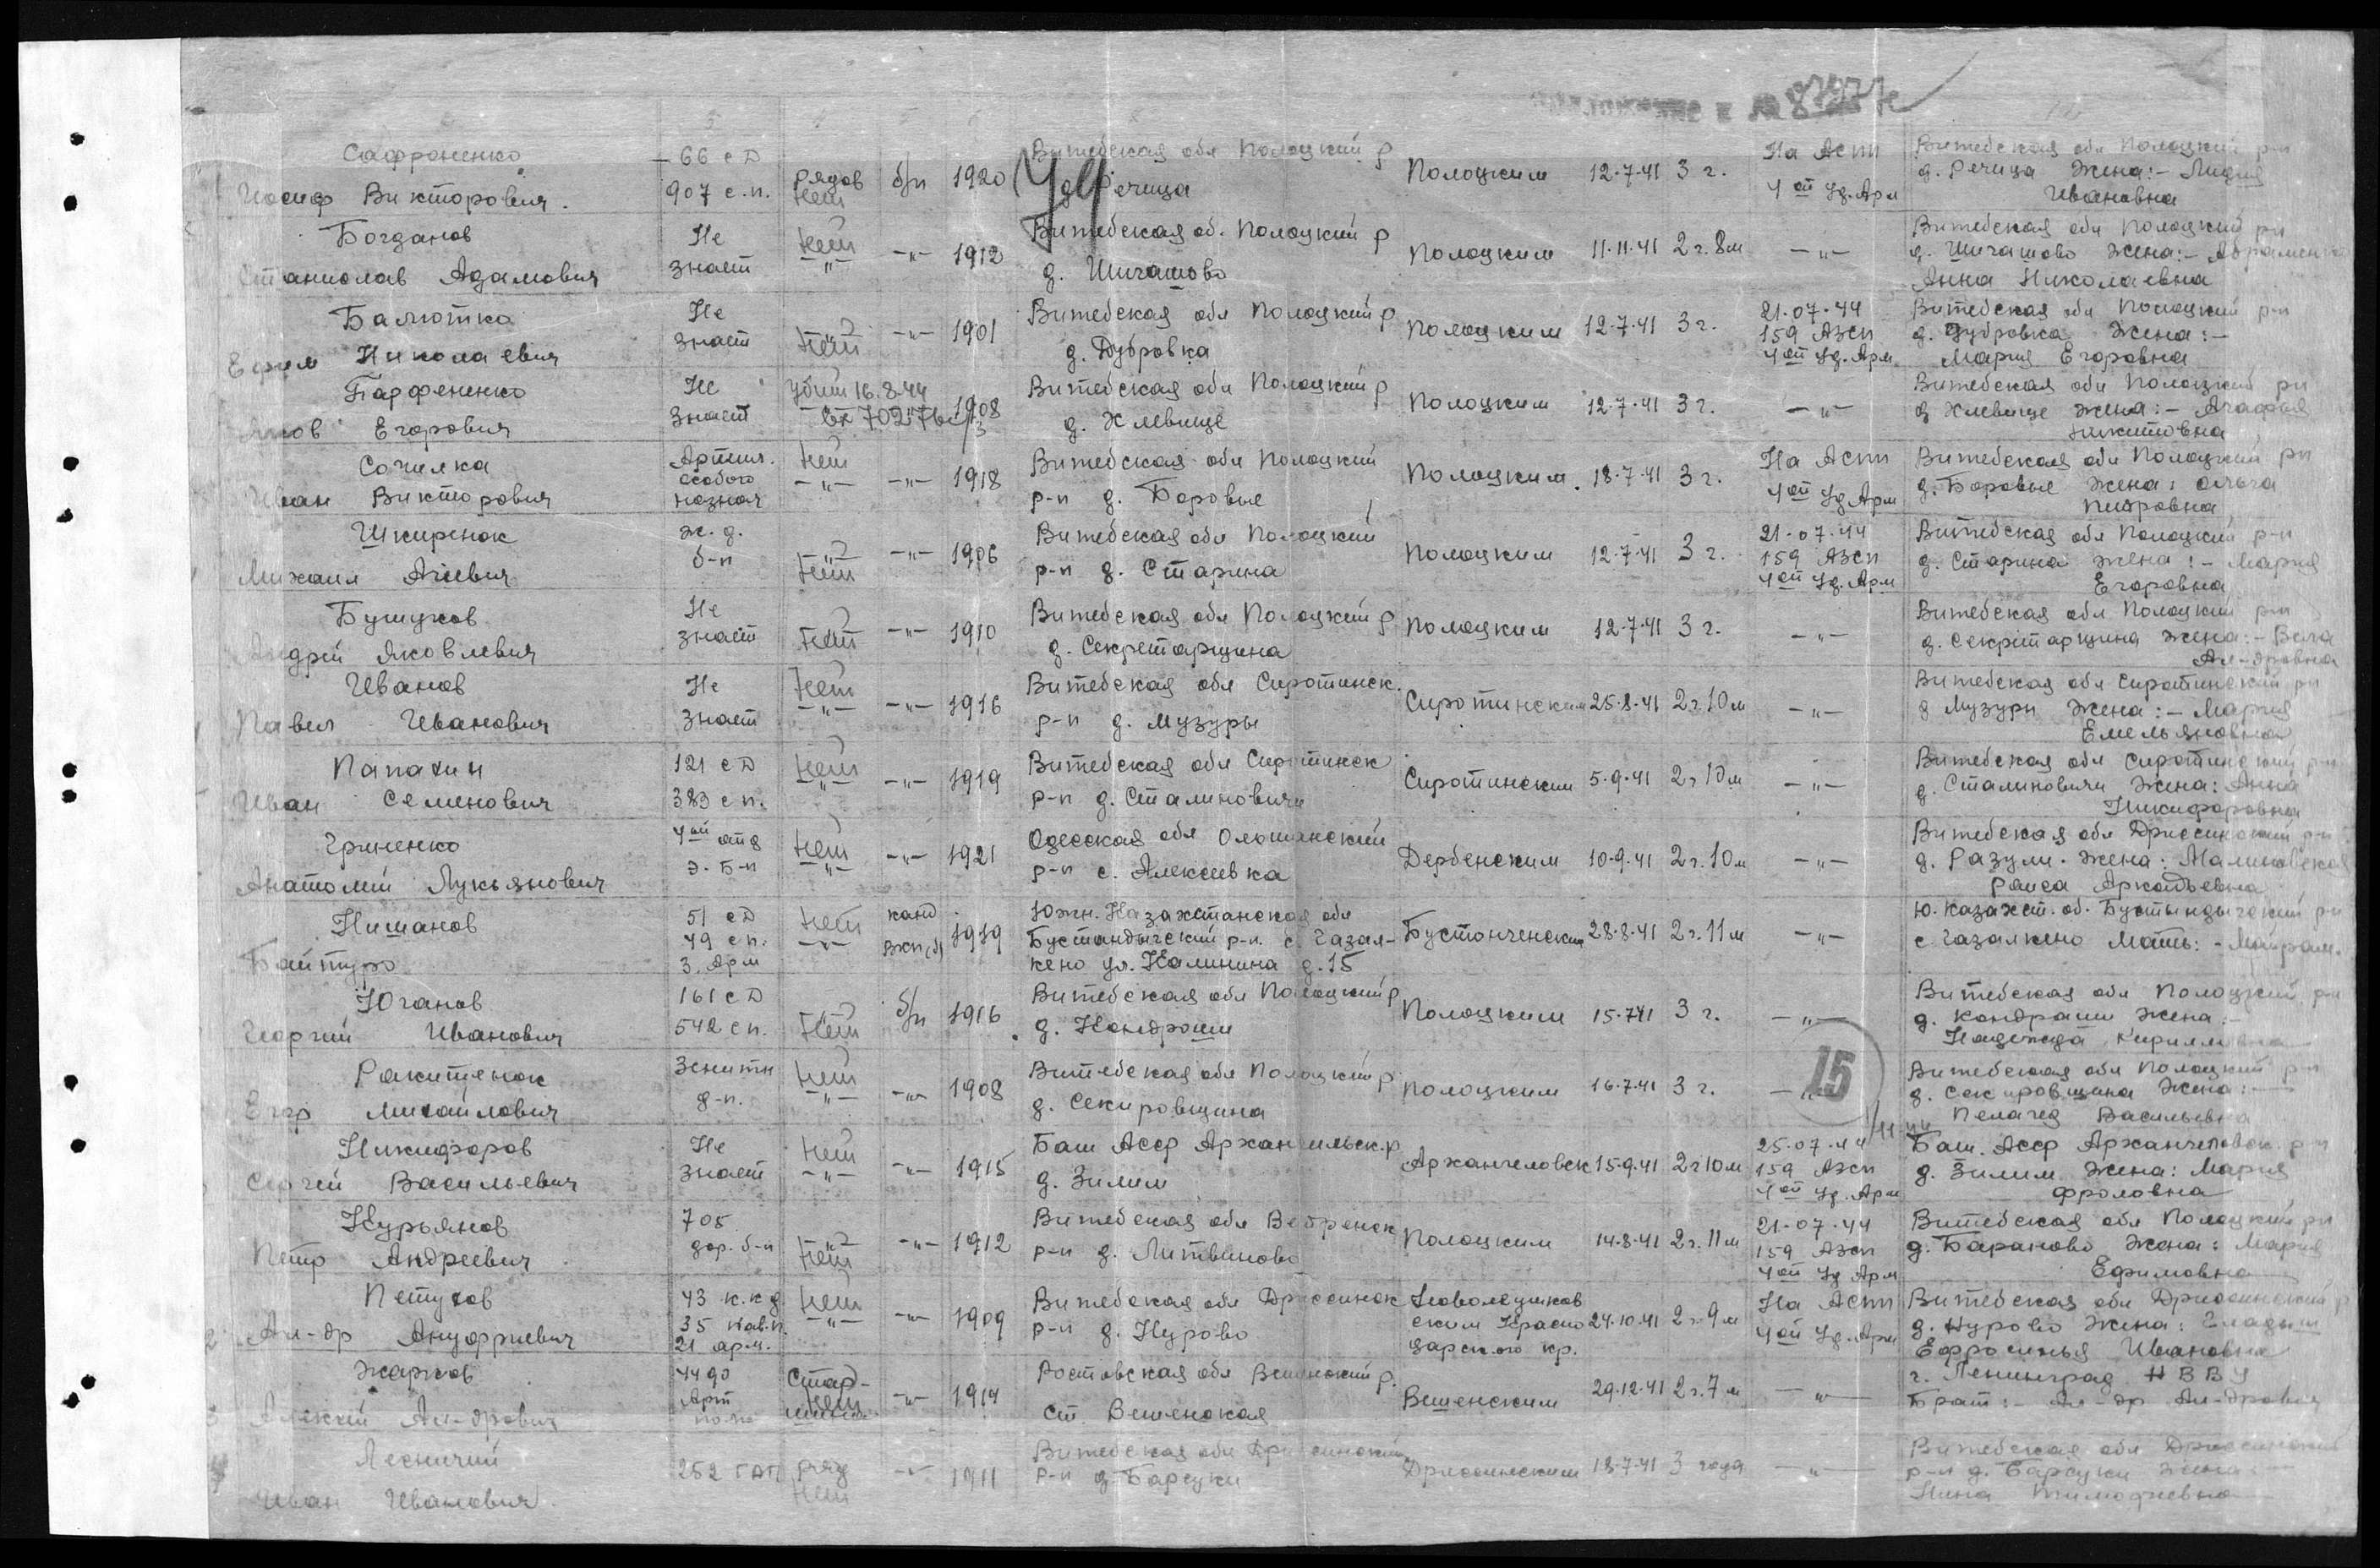 Сафроненко 66 сД Витебская обл Полоцкий р На АСПП Витебская обл Полоцкий р-н
Иосиф Викторович. 907 с.п. рядов нет б/п 1920 д. Речица Полоцким 12.7.41 3 г. 4ой Уд. Арм д. Речица Жена:- Лидия Ивановна
Богданов Не нет Витебская об. Полоцкий р Витебская обл Полоцкий рн
Станислав Адамович знает -"- -"- 1912 д. Шигашово Полоцким 11.11.41 2 г. 8 м -"- д. Шигашово Жена:-
Анна Николаевна
Балютко Не Витебская обл Полоцкий р 21.07.44 Витебская обл Полоцкий р-н
Ефим Николаевич знает нет -"- 1901 д. Дубровка Полоцким 12.7.41 3 г. 159 АЗСП 4ой Уд. Арм д. Дубровка Жена:-
Мария Егоровна
Парфененко Не убит 16.8.44 Витебская обл Полоцкий р Витебская обл Полоцкий рн
Егорович знает 1908 д. Хлевище Полоцким 12.7.41 3 г. -"- д Хлевище Жена:- Агафья
Никитовна
Сочилка Артил. нет Витебская обл Полоцкий На АСПП Витебская обл Полоцкий рн
Иван Викторович особого назнач -"- -"- 1918 р-н д. Боровые Полоцким. 18.7.41 3 г. 4ой Уд Арм д. Боровые Жена: Ольга
Петровна
Шкиренок ж.д. Витебская обл Полоцкий 21.07.44 Витебская обл Полоцкий р-н
Михаил б-н нет -"- 1906 р-н д. Старина Полоцким 12.7.41 3 г. 159 АЗСП 4ой Уд. Арм д. Старина Жена:- Мария
Егоровна
Не Витебская обл Полоцкий р Витебская обл Полоцкий р-н
Андрей Яковлевич знает нет -"- 1910 д. Секретарщина Полоцким 12.7.41 3 г. -"- д. Секретарщина Жена:- Вера
Ал-дровна
Иванов Не нет Витебская обл Сиротинск. Витебская обл Сиротинский рн
Павел Иванович знает -"- -"- 1916 р-н д. Музуры Сиротинским 25.8.41 2 г. 10 м -"- д Музури Жена:- Мария
Емельяновна
Папахин 121 сД нет Витебская обл Сиротинск Витебская обл Сиротинский р-н
Иван Семенович 383 сп. -"- -"- 1919 р-н д. Сталиновичи Сиротинским 5.9.41 2 г. 10 м -"- д. Сталиновичи Жена: Анна
Никифоровна
Гриненко 4ой отд нет Одесская обл Ольшанский Витебская обл Дриссинский р-н
Анатолий Лукьянович э. Б-н -"- -"- 1921 р-н с. Алексеевка Дербенским 10.9.41 2 г. 10 м -"- д. Разули. Жена: Малиновская
Раиса Аркадьевна
Нишанов 51 сД нет канд Южн. Казахстанская обл Ю. Казахст. об. Бустындыгский рн
Байтуро 49 сп. 3. Арм -"- ВКП(б) 1919 Бустандыгский р-н. с. Газал-кено ул. Калинина д. 15 28.8.41 2 г. 11 м -"- с Газалкено Мать:-
Юганов 161 сД б/п Витебская обл Полоцкий р Витебская обл Полоцкий р-н
Георгий Иванович 542 сп. нет 1916 д. Кондраши Полоцким 15.7.41 3 г. -"- д. Кондраши Жена:-
Надежда Кирилловна
15
Ракитенок Зенитн нет Витебская обл Полоцкий р. Витебская обл Полоцкий р-н
Егор Михайлович д-н. -"- -"- 1908 д. Секировщина Полоцким 16.7.41 3 г. -"- д. Секировщина Жена:-
Пелагея Васильевна
Никифоров Не нет Баш АССР Архангельск. р 25.07.44 Баш. АССР
Сергей Васильевич знает -"- -"- 1915 д. Зилим 15.9.41 2 г 10 м 159 АЗСП 4ой Уд. Арм д. Зилим Жена: Мария
Фроловна
Курьянов 705 Витебская обл Ветренск 21.07.44 Витебская обл Полоцкий рн
Петр Андреевич дор. б-н нет -"- 1912 р-н д. Литвиново Полоцким 14.8.41 2 г. 11 м 159 АЗСП 4ой Уд Арм д. Бараново Жена: Мария
Ефимовна
Петухов 43 к.к д. нет Витебская обл Дриссинск На АСПП Витебская обл Дриссинский р
Ал-др Ануфриевич 35 кав.п. 21 арм. -"- -"- 1909 р-н д. Курово ским Краснодарского кр. 24.10.41 2 г. 9 м 4ой Уд. Арм д. Курово Жена:
Ефросинья Ивановна
Жарков 4490 Стар- Ростовская обл Вешенский р. г. Ленинград НВВУ
Алексей Ал-дрович Арт полк нет -"- 1914 ст. Вешенская Вешенским 29.12.41 2 г. 7 м -"- Брат:- Ал-др Ал-дрович
Лесничий Витебская обл Дриссинский Витебская обл Дриссинский
Иван Иванович. 252 ГАП ряд нет -"- 1911 р-н д Барсуки Дриссинским 18.7.41 3 года -"- р-н д. Барсуки Жена
Нина Тимофеевна